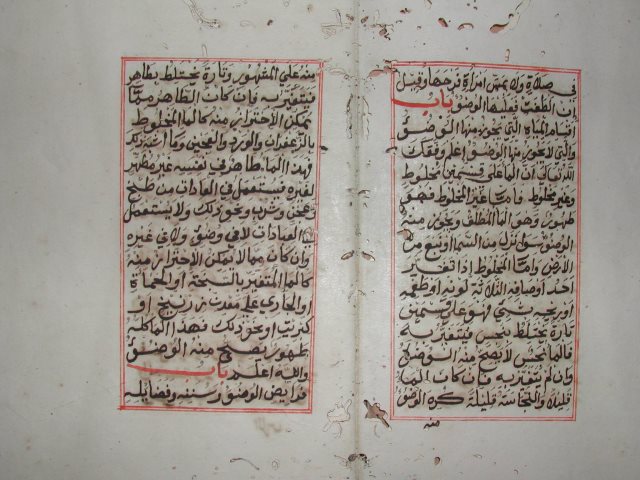 في صلاة ولا بمس امرأة فرجها وقيل
ان الطفت فعليها الوضوء باب
اقسام المياه التي يجوز منها الوضوء
والتي لا يجوز منها الوضوء اعلم وفقك
الله تعالى ان الماء على قسمين مخلوط
وغير مخلوط فاما غير المخلوط فهو
طهور وهو الماء المطلق ويجوز منه
الوضوء سوى نزل من السماء او نبع من
الارض واما المخلوط اذا تغير
احد اوصافه الثلاثة لونه او طعمه
او ريحه بشيء فهو على قسمين
تارة يختلط بنجس فيتغير به
فالماء نجس لا يصح منه الوضوء
وان لم يتغير به فان كان الماء
قليلا والنجاسة قليلة كره الوضوء
منه
منه على المشهور وتارة يختلط بطاهر
فيتغير به فان كان الطاهر مما
يمكن الاحتراز منه كالماء المخلوط
بالزعفران والورد والعجين وما اشبه ذلك
فهذا الماء طاهر في نفسه غير مطهر
لغيره فيستعمل في العادات من طبخ
وعجن وشرب ونحو ذلك ولا يستعمل
في العبادات لا في وضوء ولا في غيره
وان كان مما لا يمكن الاحتراز منه
كالماء المتغير بالسبخة او الحمأة
او الجاري على معدن زرنيخ او
كبريت او نحو ذلك فهذا الماء كله
طهور يصح منه الوضوء
والله اعلم باب
فرايض الوضوء وسننه وفضايله